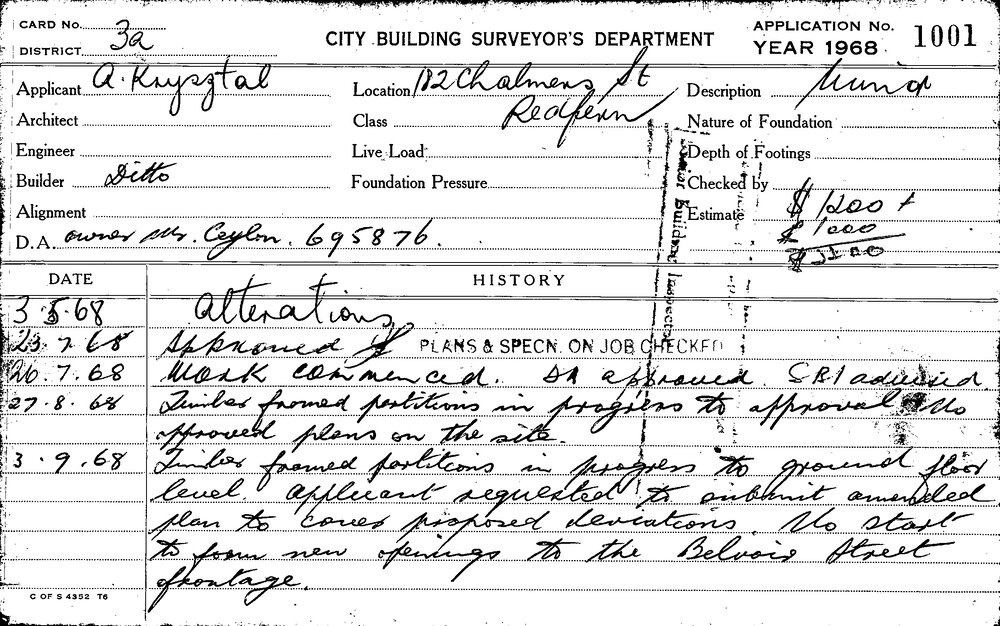 CARD No.
DISTRICT 3a
CITY BUILDING SURVEYOR'S DEPARTMENT
APPLICATION No. 1001
YEAR 1968
Applicant A. Krysztal
Location 182 Chalmers St
Redfern
Description
Architect
Class
Nature of Foundation
Engineer
Live Load
Depth of Footings
Builder Ditto
Foundation Pressure
Checked by
Alignment
Estimate $ 1200 +
$ 1000
D.A. owner Mr. Ceylon. 695876.
Building Inspector
DATE
HISTORY
3 5.68 Alterations
23.7.68 Approved PLANS & SPECN. ON JOB CHECKED
26.7.68 Work commenced. DA approved. SBI advised
27.8.68 Timber framed partitions in progress to approval No
approved plans on the site.
3.9.68 Timber framed partitions in progress to ground floor
level. Applicant requested to submit amended
plan to cover proposed deviations No start
to form new openings to the Belvoir Street
frontage.
C OF S 4352 T6